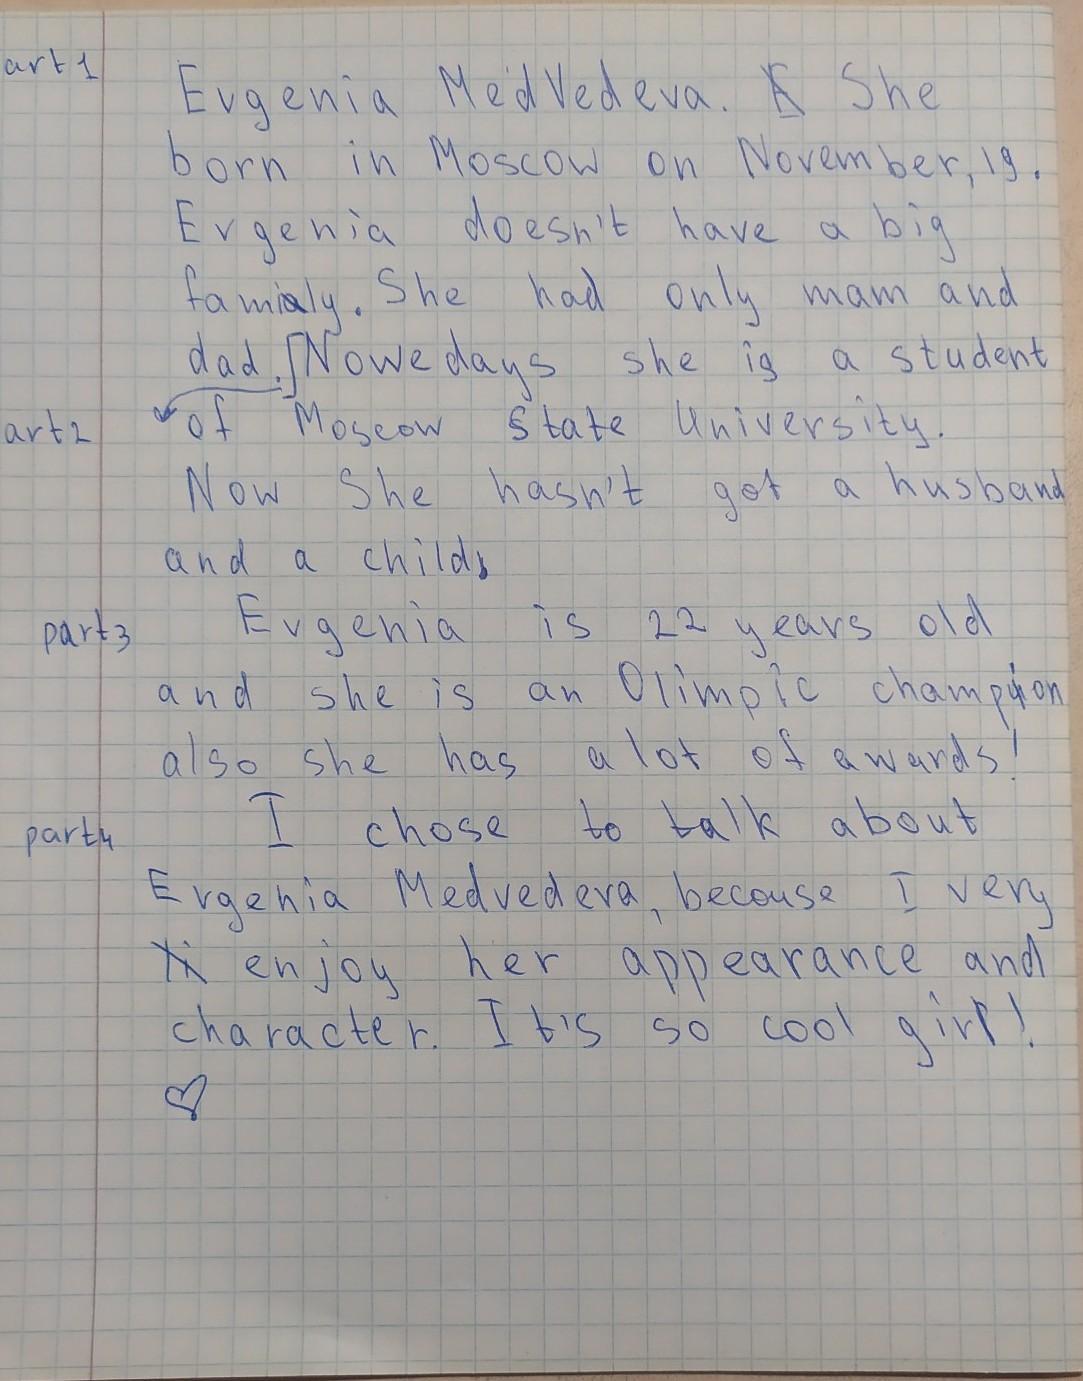 art1 Evgenia MedVedeva. She
born in Moscow on November, 19.
Evgenia doesn't have a big
famialy. She had only mam and
dad. Nowedays she is a student
art2 of Moscow State University.
Now She hasn't got a husband
and a child.
part3 Evgenia is 22 years old
and she is an Olimpic champion
also she has a lot of awards!
part4 I chose to talk about
Evgenia Medvedeva, becouse I very
enjoy her appearance and
character. It's so cool girl!